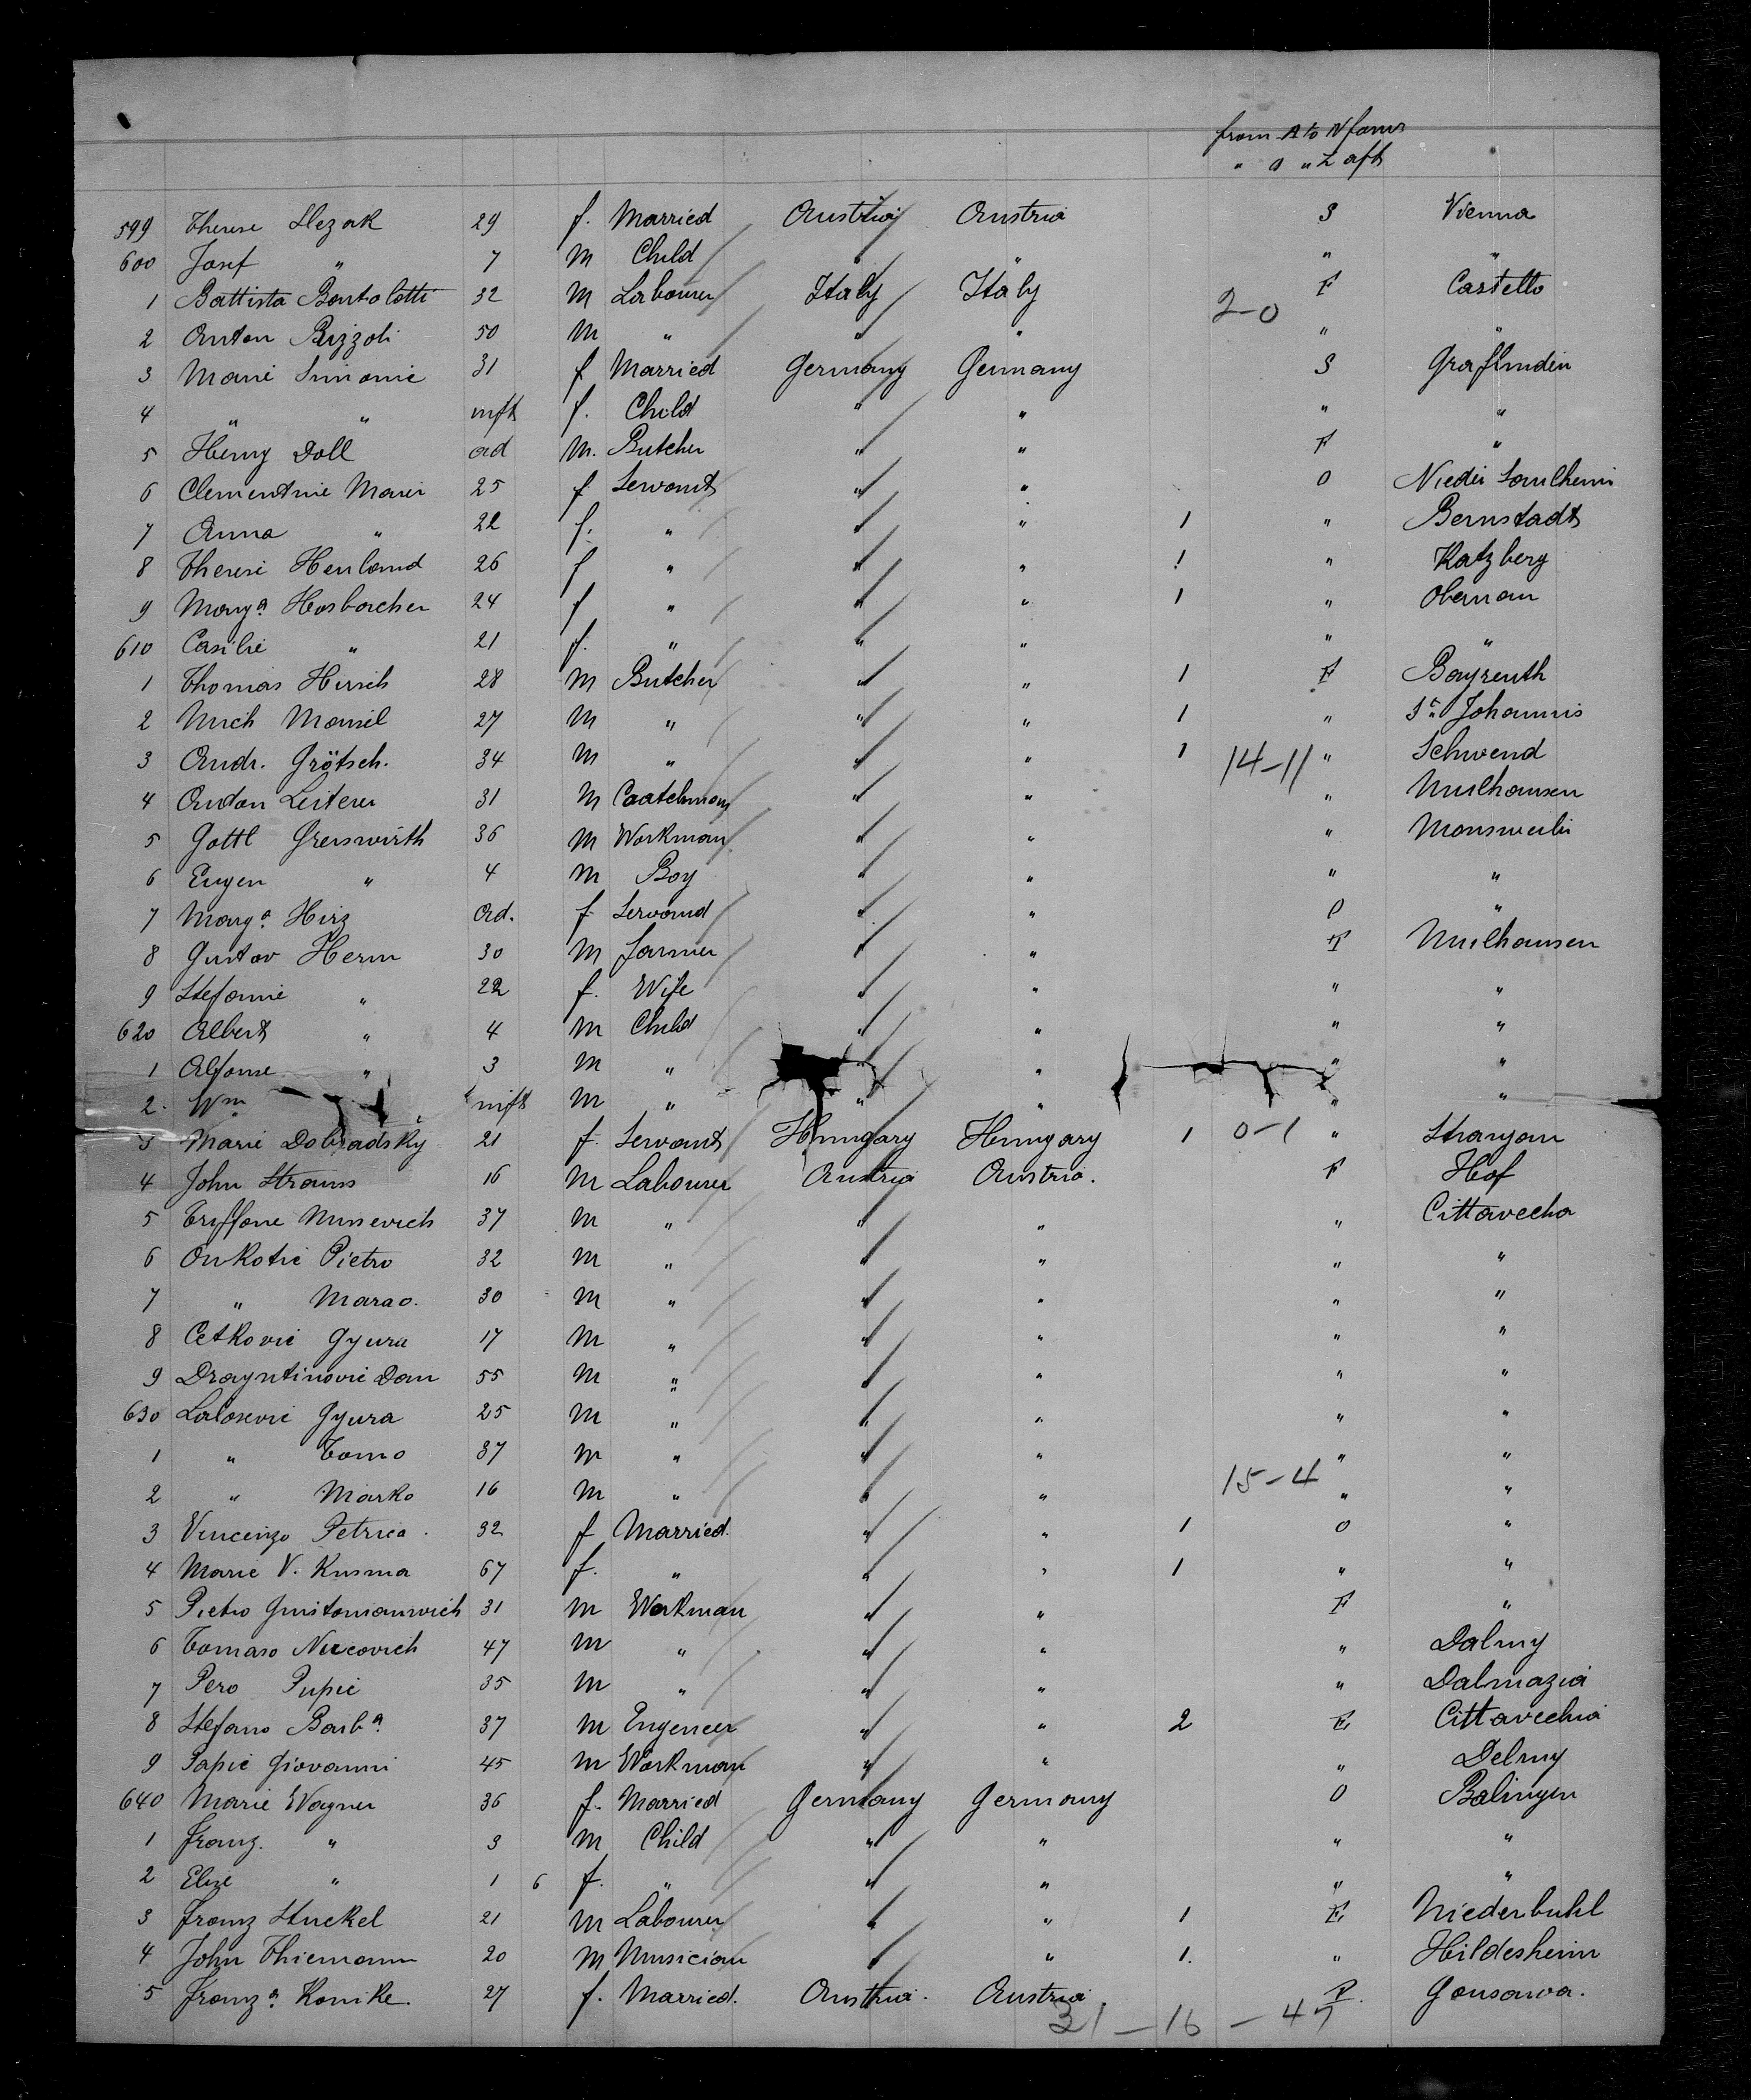 from A to N forw
" O " Z aft
599 Therese Slezak 29 f. Married Austria Austria S Vienna
600 Josef " 7 m Child " " " "
1 Battista Bortolotti 32 m Labourer Italy Italy F Castello
2-0
2 Anton Rizzoli 50 m " " " " "
3 Marie Simonie 31 f Married Germany Germany S
4 " " inft f. Child " " " "
5 Henry Doll ad m. Butcher " " F "
6 Clementine Maier 25 f Servant " " O Nieder Saulheim
7 Anna " 22 f. " " " 1 " Bernstadt
8 Therese Henland 26 f " " " 1 " Katzberg
9 Marga Hosbacher 24 f " " " 1 " Obernau
610 Casilie " 21 f. " " " " "
1 Thomas Hirsch 28 m Butcher " " 1 F Bayreuth
2 Mich 27 m " " " 1 " St Johannis
3 Andr. Grötsch. 34 m " " " 1 " Schwend
14-11
4 Anton Leiterer 31 m " " " Mulhausen
5 Gottl Greiswirth 36 m Workman " " " Monsweiler
6 Eugen " 4 m Boy " " " "
7 Marga Hirz ad. f Servand " " O "
8 Gustav Herm 30 m farmer " " F Mulhausen
9 Stefanie " 22 f. Wife " " " "
620 Albert " 4 m Child " " " "
1 Alfonse " 3 m " " " " "
2. Wm inft m " " " " "
3 Marie Dobradsky 21 f. Servant Hungary Hungary 1 0-1 "
4 John Strauss 16 m Labourer Austria Austria. F Hof
5 Triffone 37 m " " " " Cittavecha
6 Ankotie Pietro 32 m " " " " "
7 " Marao. 30 m " " " " "
8 Cetkovie Gyura 17 m " " " " "
9 Dan 55 m " " " " "
630 Lalosevie Gyura 25 m " " " " "
1 " Tomo 37 m " " " " "
15-4
2 " Marko 16 m " " " " "
3 Vincenzo Petrica. 32 f Married. " " 1 O "
4 Marie V. Kusma 67 f. " " " 1 " "
5 Pietro 31 m Workman " " F "
6 Tomaso Nicovich 47 m " " " " Dalmy
7 Pero Pupie 35 m " " " " Dalmazia
8 Stefano Barba. 37 m Engeneer " " 2 F Cittavechia
9 Papie Giovanni 45 m Workman " " " Delmy
640 Marie Wagner 36 f. Married Germany Germany O Balingen
1 franz. " 3 m Child " " " "
2 Elise " 1 6 f. " " " " "
3 franz Stuckel 21 m Labourer " " 1 F Niederbuhl
4 John Thiemann 20 m Musician " " 1. " Hildesheim
5 franza. Konike. 27 f. Married. Austria. Austria. F. Gonsawa.
31 - 16 - 47